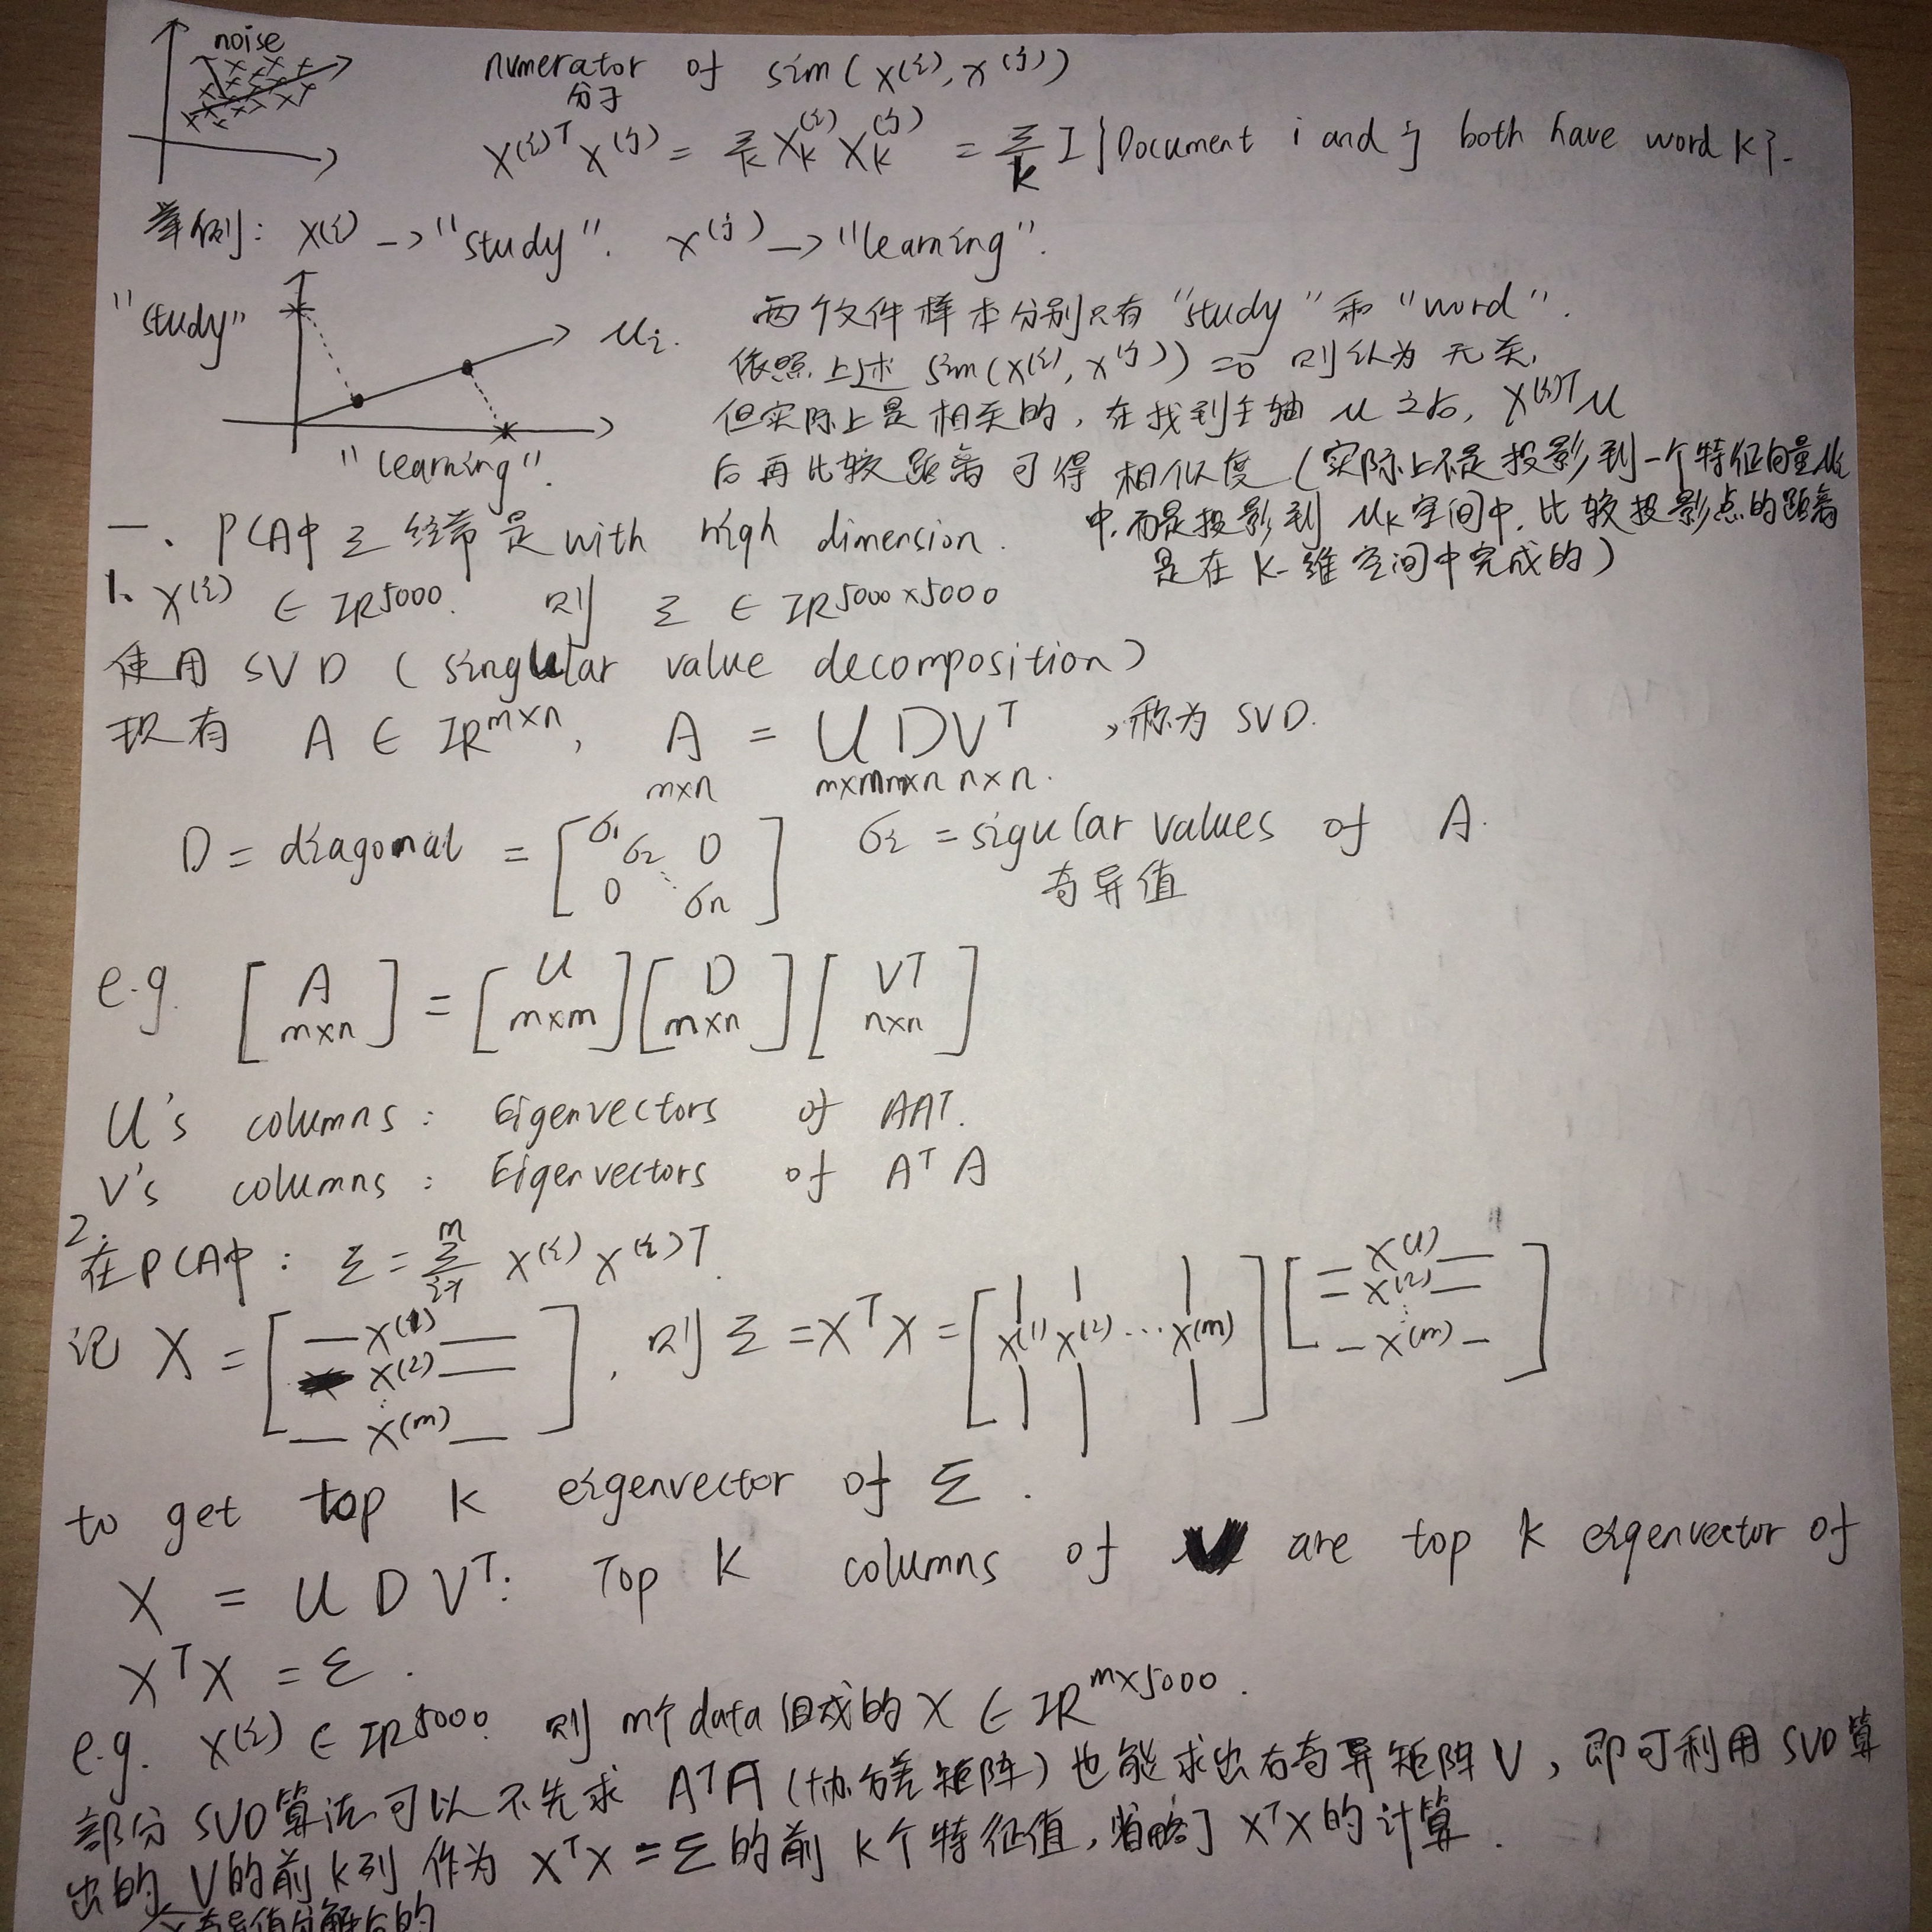 noise
numerator of sim(x⁽ⁱ⁾, x⁽ʲ⁾)
分子
x⁽ⁱ⁾ᵀ x⁽ʲ⁾ = Σ_k x_k⁽ⁱ⁾ x_k⁽ʲ⁾ = Σ_k I{Document i and j both have word k}.
举例: x⁽ⁱ⁾ -> "study". x⁽ʲ⁾ -> "learning".
"study"
u_i.
"learning".
两个文件样本分别只有 "study" 和 "word".
依照上述 sim(x⁽ⁱ⁾, x⁽ʲ⁾) = 0 则认为无关,
但实际上是相关的, 在找到主轴 u 之后, x⁽ⁱ⁾ᵀu
后再比较距离可得 相似度 (实际上不是投影到一个特征向量u_i
中, 而是投影到 u_k 空间中, 比较投影点的距离
是在 k-维空间中完成的)
一、PCA中 Σ 经常是 with high dimension.
1、x⁽ⁱ⁾ ∈ IR⁵⁰⁰⁰. 则 Σ ∈ IR⁵⁰⁰⁰ˣ⁵⁰⁰⁰
使用 SVD (singular value decomposition)
现有 A ∈ IRᵐˣⁿ, A = U D Vᵀ, 称为 SVD.
m×n m×m m×n n×n.
D = diagonal = [σ₁ σ₂ 0 0 ⋱ σn] σi = sigular values of A.
奇异值
e.g. [A m×n] = [U m×m] [D m×n] [Vᵀ n×n]
U's columns: Eigenvectors of AAᵀ.
V's columns: Eigenvectors of Aᵀ A
2.
在PCA中: Σ = Σ_{i=1}^{m} x⁽ⁱ⁾ x⁽ⁱ⁾ᵀ.
记 X = [— x⁽¹⁾ — x⁽²⁾ — ⋮ — x⁽ᵐ⁾ —], 则 Σ = XᵀX = [x⁽¹⁾ x⁽²⁾ ... x⁽ᵐ⁾] [— x⁽¹⁾ — — x⁽²⁾ — ⋮ — x⁽ᵐ⁾ —]
to get top k eigenvector of Σ.
X = U D Vᵀ: Top k columns of V are top k eigenvector of
XᵀX = Σ.
e.g. x⁽ⁱ⁾ ∈ IR⁵⁰⁰⁰. 则 m个data组成的 X ∈ IRᵐˣ⁵⁰⁰⁰.
部分 SVD算法可以不先求 AᵀA (协方差矩阵) 也能求出右奇异矩阵 V, 即可利用 SVD算
出的 V的前k列 作为 XᵀX = Σ 的前 k个特征值, 省略了 XᵀX 的计算.
X奇异值分解后的